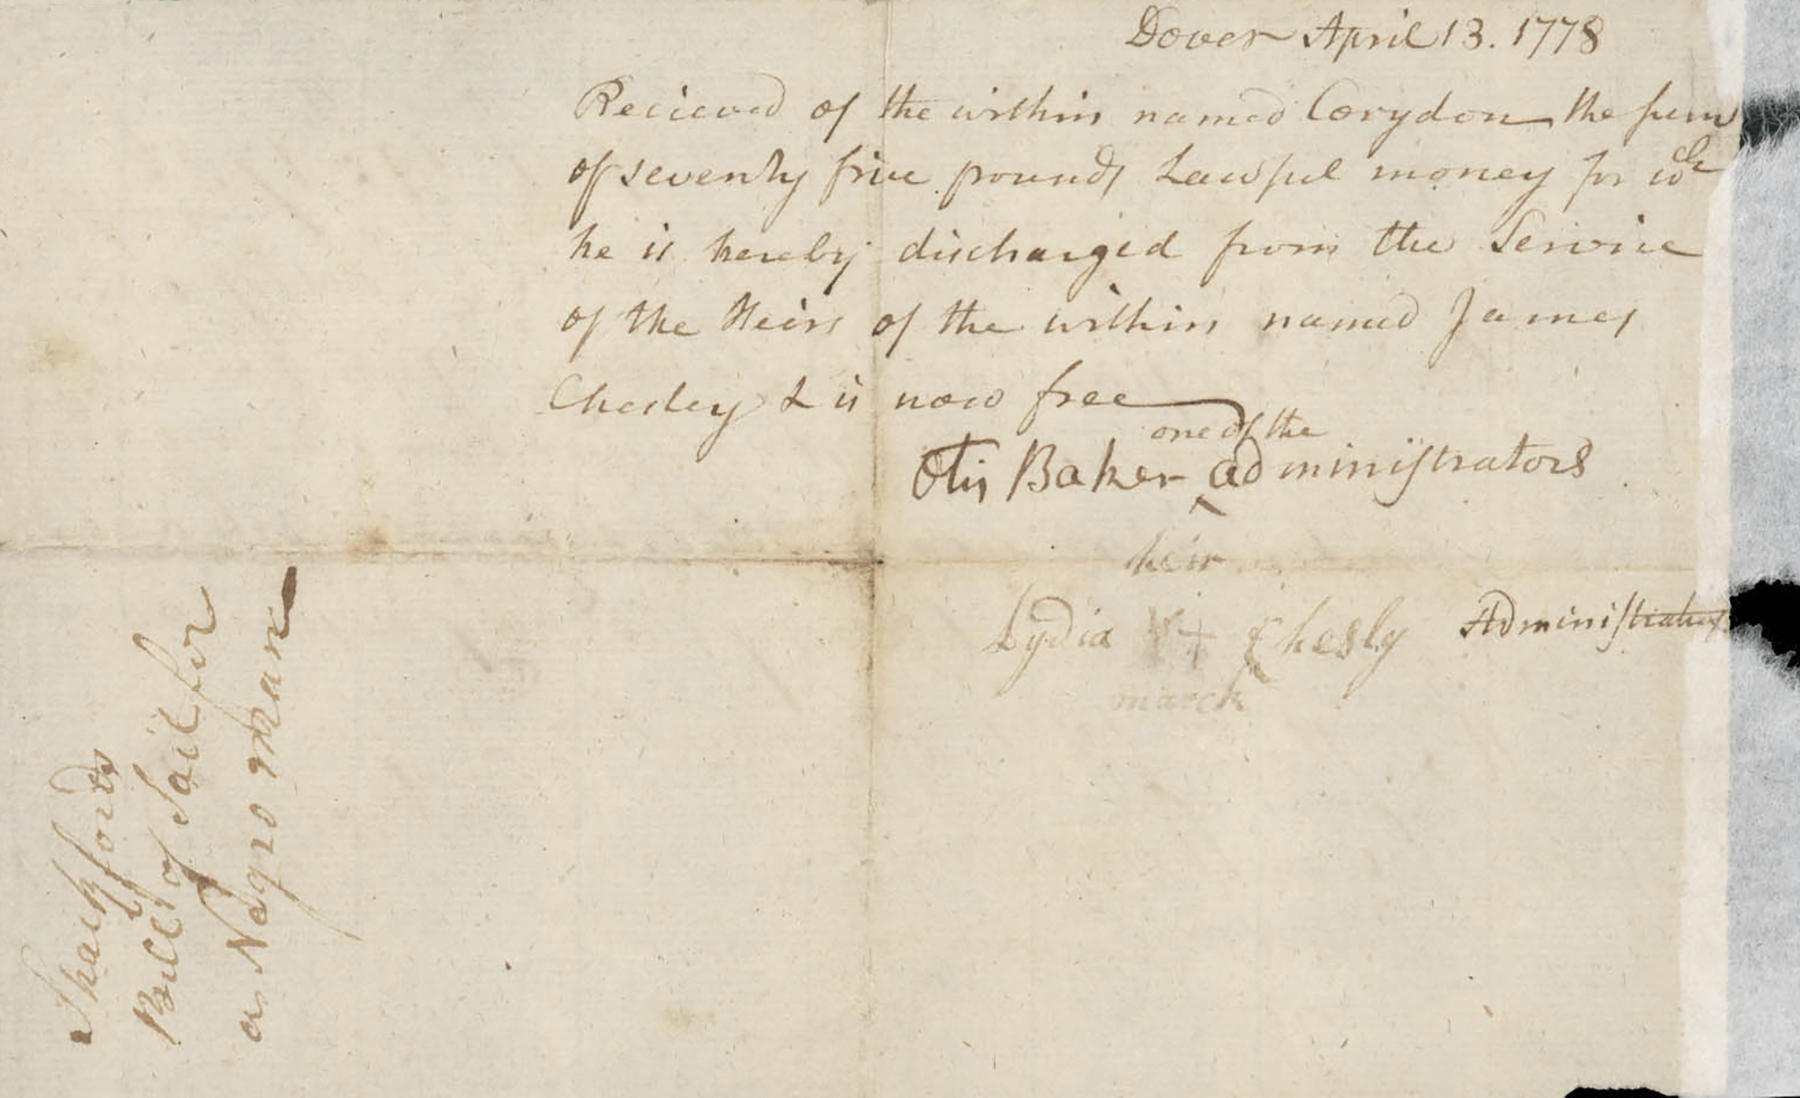 Dover April 13. 1778
Recieved of the within named Corydon the sum
of seventy five pounds Lawful money for wch
he is hereby discharged from the Service
of the Heirs of the within named James
Chesley & is now free
one of the
Otis Baker ‸ administrators
heir
Lydia + Chesly Administrators
marck
Shackfords
Bill of Sail for
a Negro Man